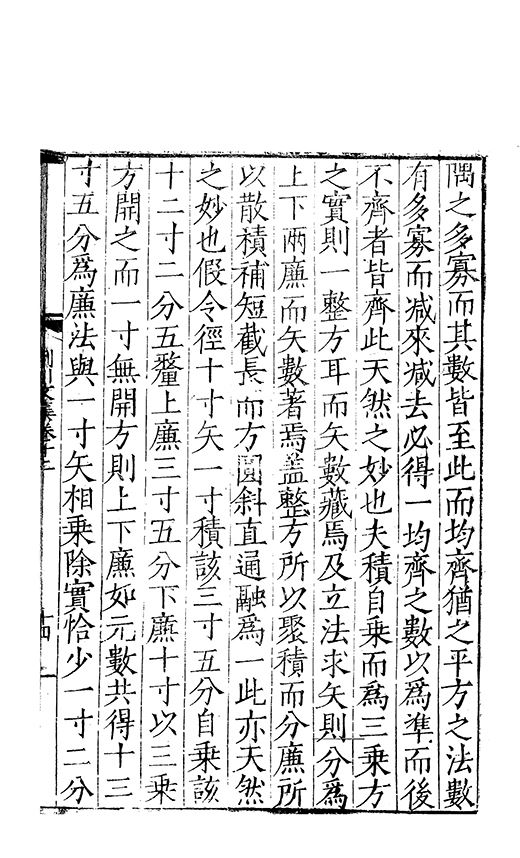 隅之多寡而其數皆至此而均齊猶之平方之法數
有多寡而減來減去必得一均齊之數以爲準而後
不齊者皆齊此天然之妙也夫積自乗而爲三乗方
之實則一整方耳而矢數藏焉及立法求矢則分爲
上下兩廉而矢數著焉盖整方所以聚積而分廉所
以散積補短截長而方圓斜直通融爲一此亦天然
之妙也假令徑十寸矢一寸積該三寸五分自乗該
十二寸二分五釐上廉三寸五分下廉十寸以三乗
方開之而一寸無開方則上下廉如元數共得十三
寸五分爲廉法與一寸矢相乗除實恰少一寸二分
荆川文集卷十二
十四